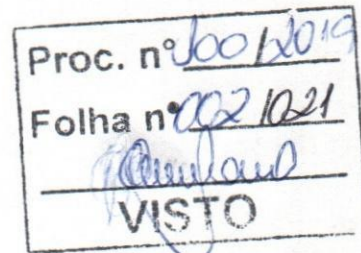 Proc. nº 300/2019
Folha nº 002/021
VISTO